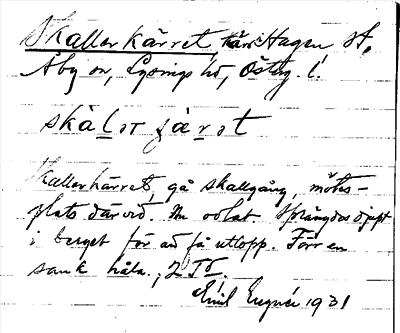 Skallerkärret, kärr Hagen st,
Åby sn, Lysings hd, Östg. l.
skàḷər ʝæ̀ṛət
Skallerkärret, gå skallgång, mötes-
plats därvid. Nu odlat. Sprängdes djupt
i berget för att få utlopp. Förr en
sank håla.,
Emil 1931